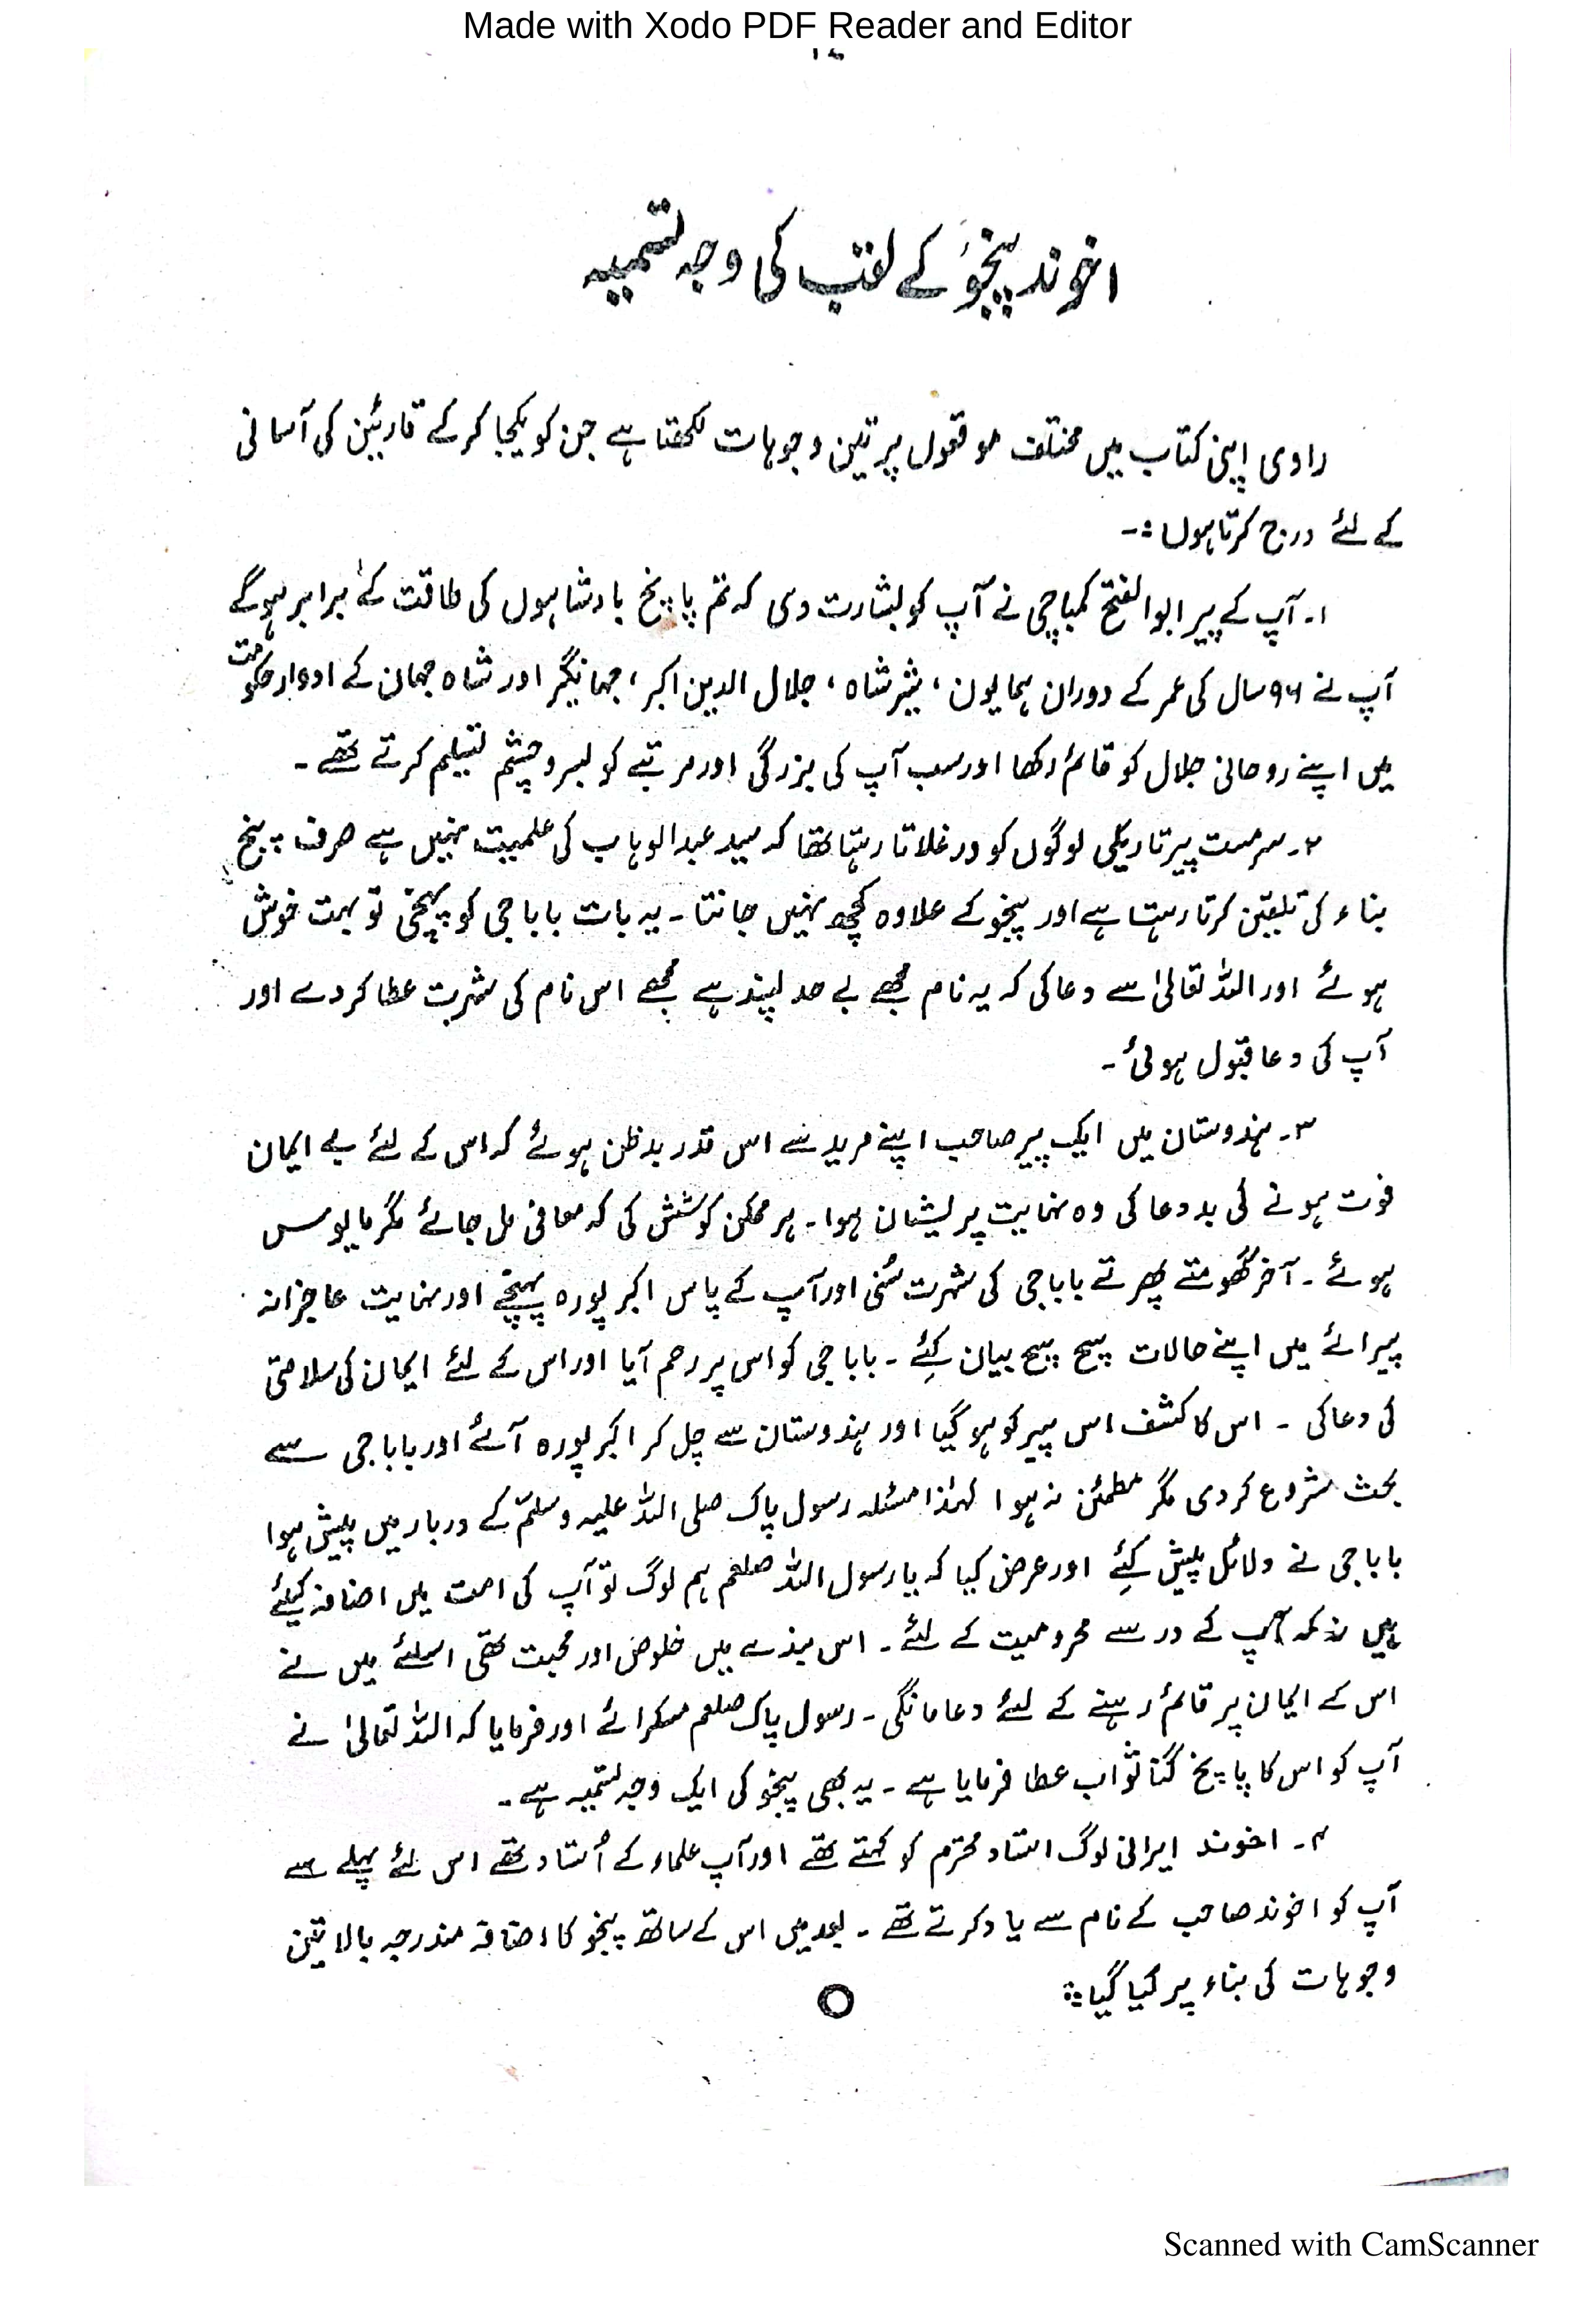 Made with Xodo PDF Reader and Editor
اخوند پنجوؒ کے لقب کی وجہ تسمیہ
راوی اپنی کتاب میں مختلف موقعوں پر تین وجوہات لکھتا ہے جن کو یکجا کر کے قارئین کی آسانی
کے لئے درج کرتا ہوں :-
۱۔ آپ کے پیر ابوالفتح کمباچی نے آپ کو بشارت دی کہ تم پانچ بادشاہوں کی طاقت کے برابر ہوگے
آپ نے ۹۶ سال کی عمر کے دوران ہمایون، شیر شاہ، جلال الدین اکبر، جہانگیر اور شاہ جہان کے ادوار حکومت
میں اپنے روحانی جلال کو قائم رکھا اور سب آپ کی بزرگی اور مرتبے کو بسر و چشم تسلیم کرتے تھے۔
۲۔ سرمست پیر تاریکی لوگوں کو ورغلاتا رہتا تھا کہ سید عبدالوہاب کی علمیت نہیں ہے صرف پنج
بناء کی تلقین کرتا رہتا ہے اور پنجو کے علاوہ کچھ نہیں جانتا۔ یہ بات باباجی کو پہنچی تو بہت خوش
ہوئے اور اللہ تعالیٰ سے دعا کی کہ یہ نام مجھے بے حد پسند ہے مجھے اس نام کی شہرت عطا کر دے اور
آپ کی دعا قبول ہوئی۔
۳۔ ہندوستان میں ایک پیر صاحب اپنے مرید سے اس قدر بدظن ہوئے کہ اس کے لئے بے ایمان
فوت ہونے کی بددعا کی وہ نہایت پریشان ہوا۔ ہر ممکن کوشش کی کہ معافی مل جائے مگر مایوس
ہوئے۔ آخر گھومتے پھرتے باباجی کی شہرت سُنی اور آپ کے پاس اکبر پورہ پہنچے اور نہایت عاجزانہ
پیرائے میں اپنے حالات سچ سچ بیان کئے۔ باباجی کو اس پر رحم آیا اور اس کے لئے ایمان کی سلامتی
کی دعا کی۔ اس کا کشف اس پیر کو ہو گیا اور ہندوستان سے چل کر اکبر پورہ آئے اور باباجی سے
بحث شروع کر دی مگر مطمئن نہ ہوا لہٰذا مسئلہ رسول پاک صلی اللہ علیہ وسلم کے دربار میں پیش ہوا
باباجی نے دلائل پیش کئے اور عرض کیا کہ یا رسول اللہ صلعم ہم لوگ تو آپ کی امت میں اضافہ کیلئے
ہیں نہ کہ آپ کے در سے محرومیت کے لئے۔ اس بندے میں خلوص اور محبت تھی اسلئے میں نے
اس کے ایمان پر قائم رہنے کے لئے دعا مانگی۔ رسول پاک صلعم مسکرائے اور فرمایا کہ اللہ تعالیٰ نے
آپ کو اس کا پانچ گنا ثواب عطا فرمایا ہے۔ یہ بھی پنجو کی ایک وجہ تسمیہ ہے۔
۴۔ اخوند ایرانی لوگ استاد محترم کو کہتے تھے اور آپ علماء کے اُستاد تھے اس لئے پہلے سے
آپ کو اخوند صاحب کے نام سے یاد کرتے تھے۔ بعد میں اس کے ساتھ پنجو کا اضافہ مندرجہ بالا تین
وجوہات کی بناء پر کیا گیا:
Scanned with CamScanner